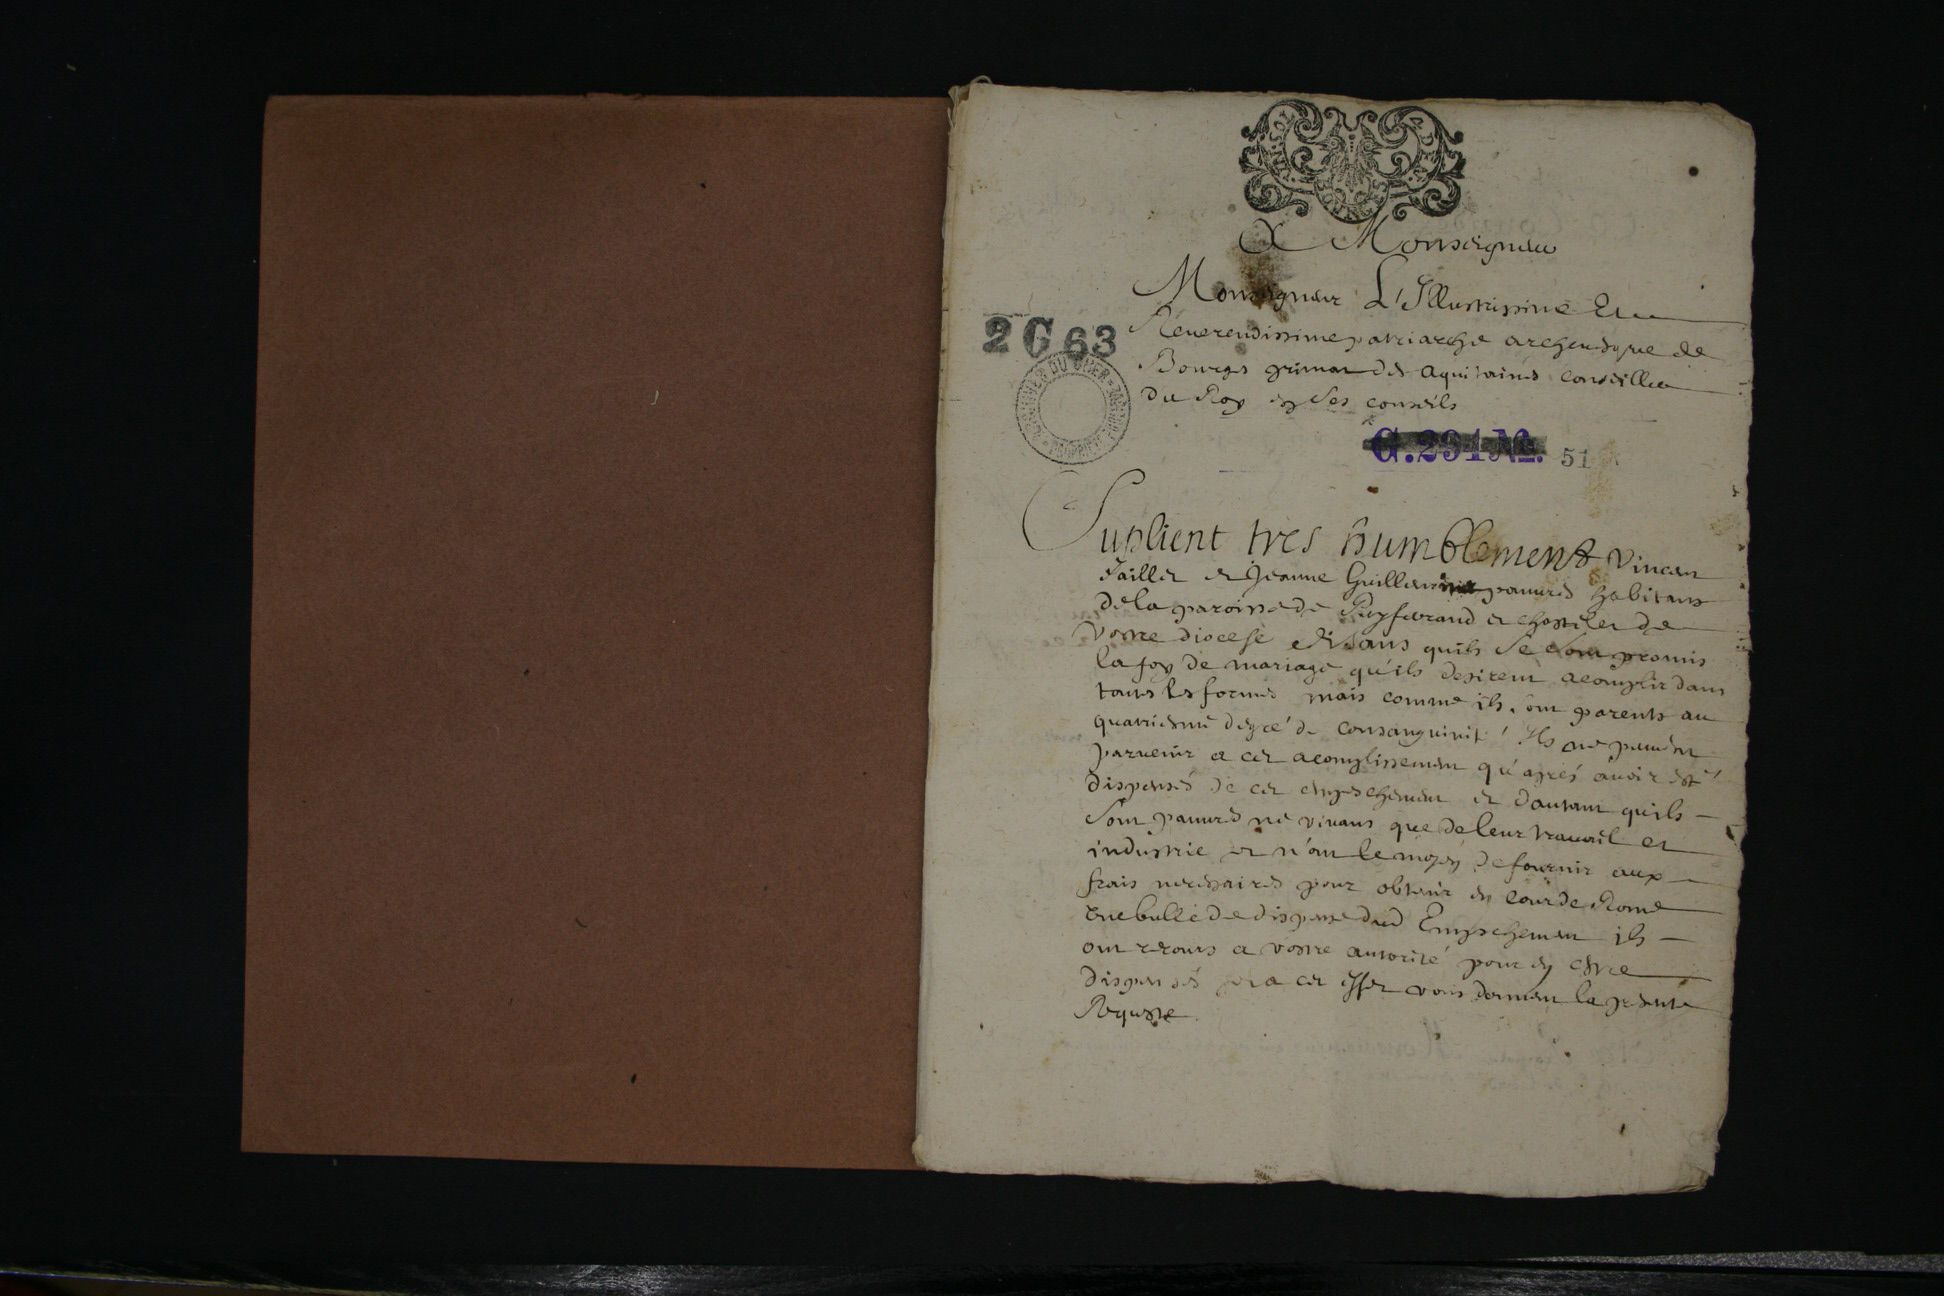 A Monseigneur
Monseigneur L'Illustrissime Et
Reverendissime patriarche archeuesque de
2 G 63
Bourges primat des aquitaines conseiller
du Roy en Ses conseils
G.294 No. 51
Suplient tres humblement Vincent
et Jeanne pauures habitans
de la paroisse de Puyferrand et chastelet de
Vostre diocese disans quils Se Sont promis
la foy de mariage qu'ils desirent acomplir dans
toutes les formes mais comme ils sont parents au
quatriesme degré de consanguinité Ils ne peuuent
paruenir a cet acomplissement qu'aprés auoir esté
dispensés de cet empeschement et dautant quils
Sont pauures ne viuans que de leur trauail et
industrie et n'ont le moyen de fournir aux
frais necessaires pour obtenir en cour de Rome
Vne bulle de dispense dud Empechement ils
ont recours a vostre autorité pour en estre
dispensés et a cet effet vous donnent la presente
Requeste